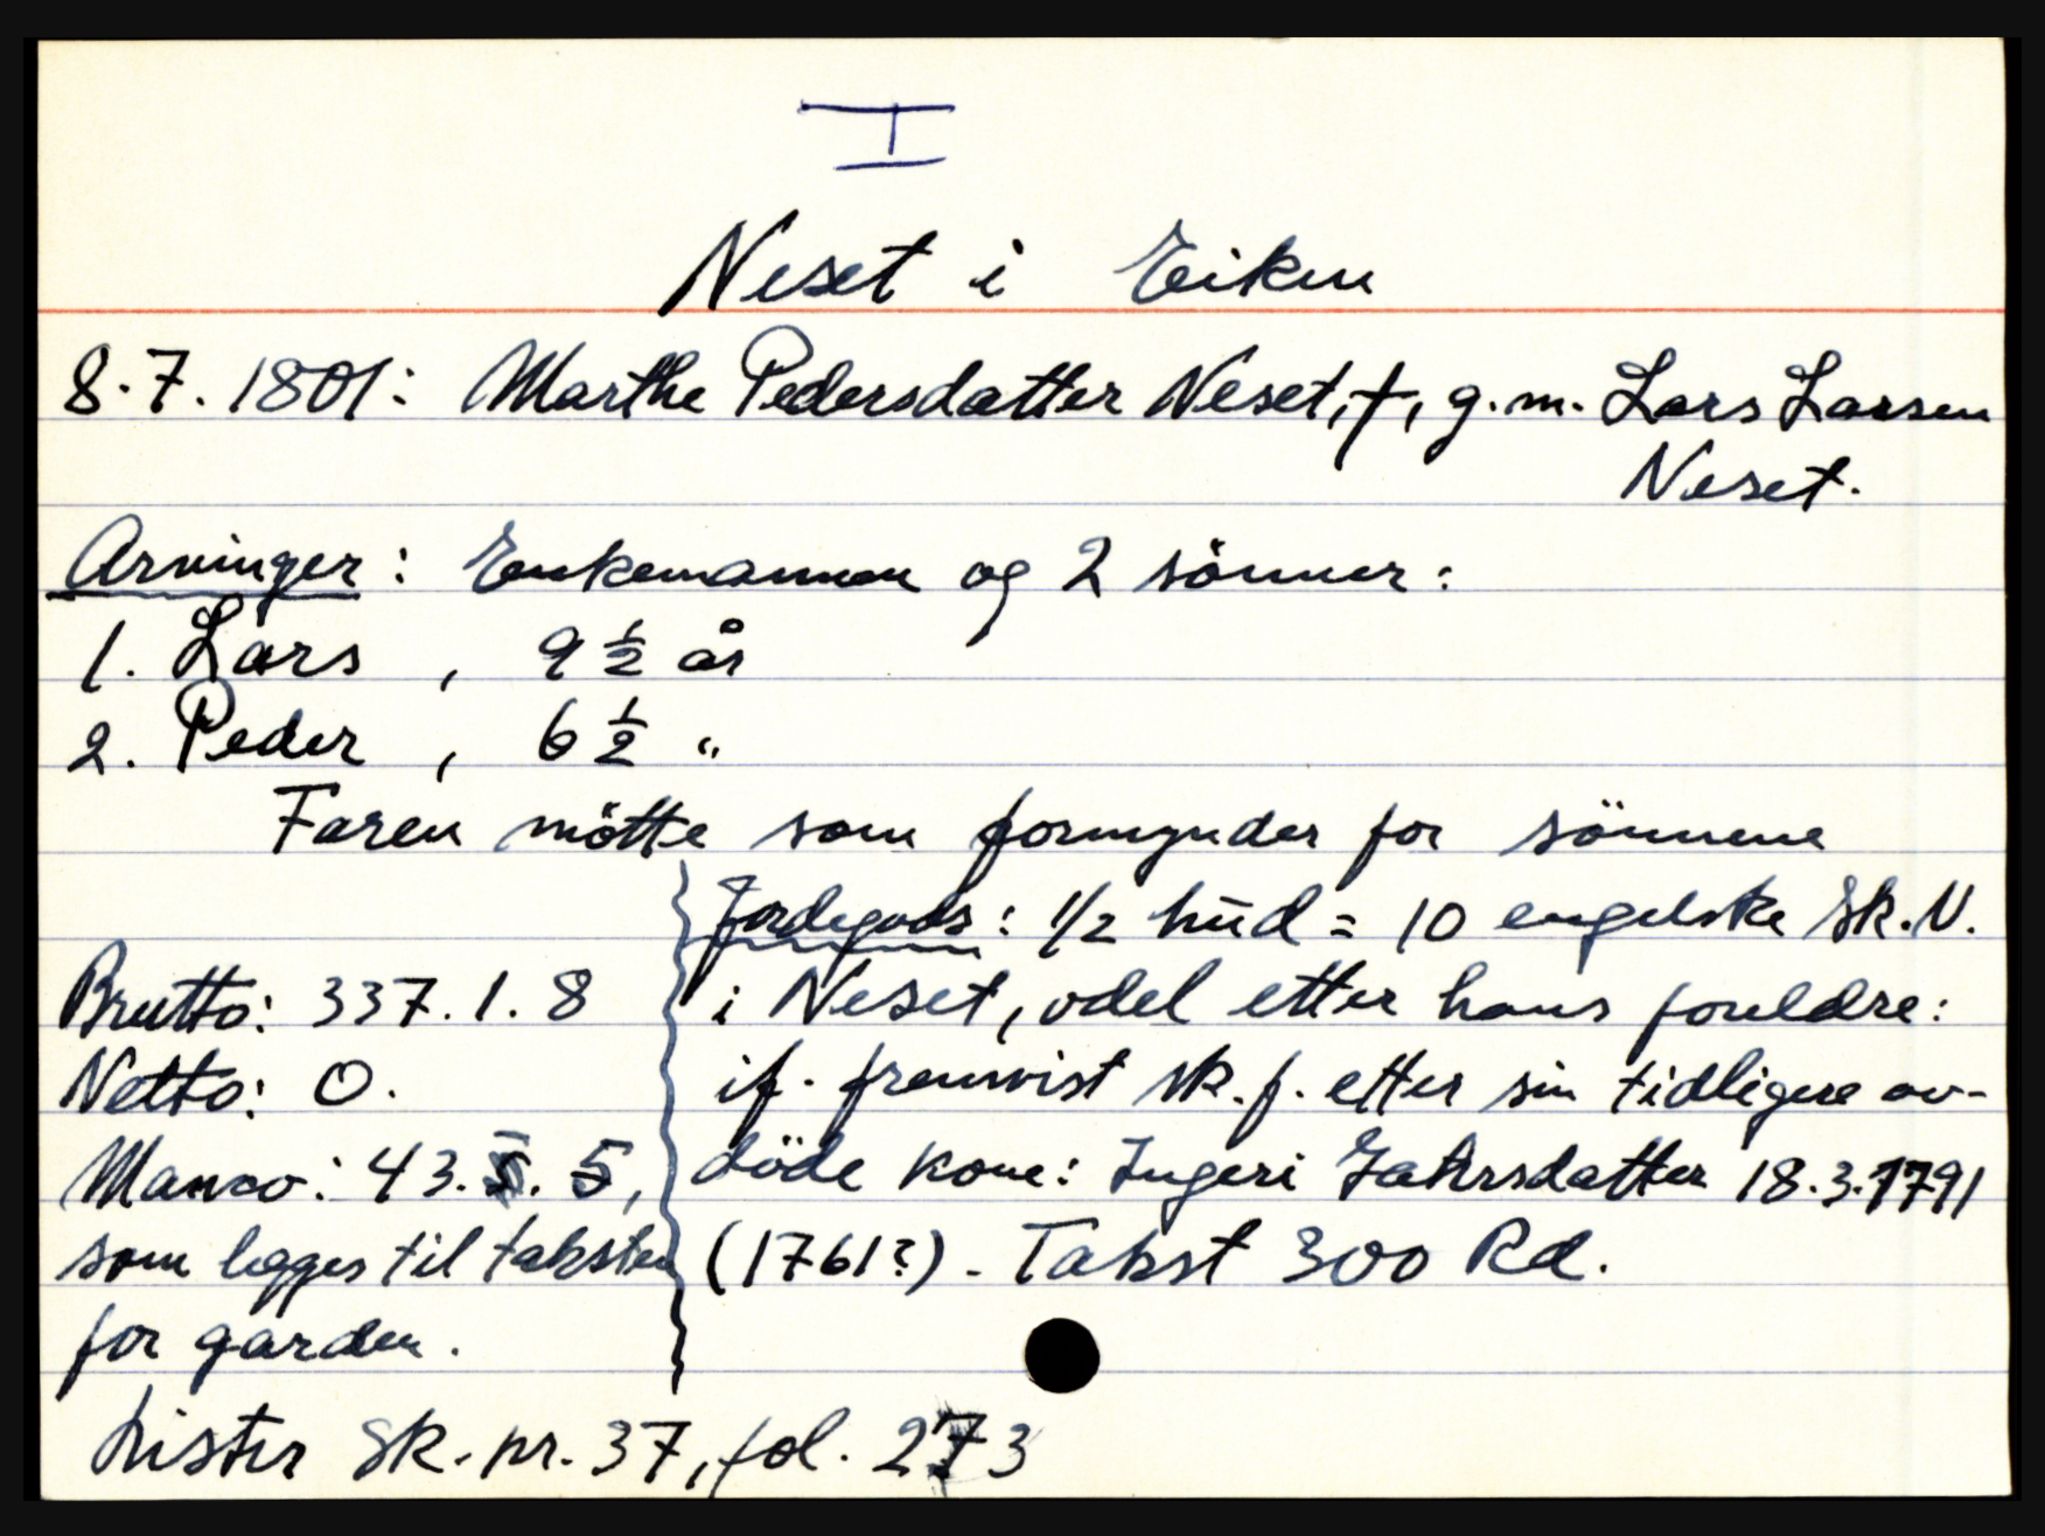 I
Neset i Eiken
8.7. 1801: Marthe Pedersdatter Neset, †, g.m. Lars Larsen
Neset.
Arvinger: Enkemannen og 2 sönner:
1. Lars, 9 ½ år
2. Peder, 6 ½ "
Faren mötte som formynder for sönnene
Brutto: 337. 1. 8
Netto: 0.
Manco: 43. 5. 5,
som legges til taksten
for garden.
Jordegods: 1/2 hud = 10 engelske Sk. N.
i Neset, odel etter hans foreldre:
if. fremvist sk. f. etter sin tidligere av-
döde kone: Ingeri Gahrsdatter 18.3.1791
(1761?) - Takst 300 Rd.
Lister Sk. nr. 37, fol. 273